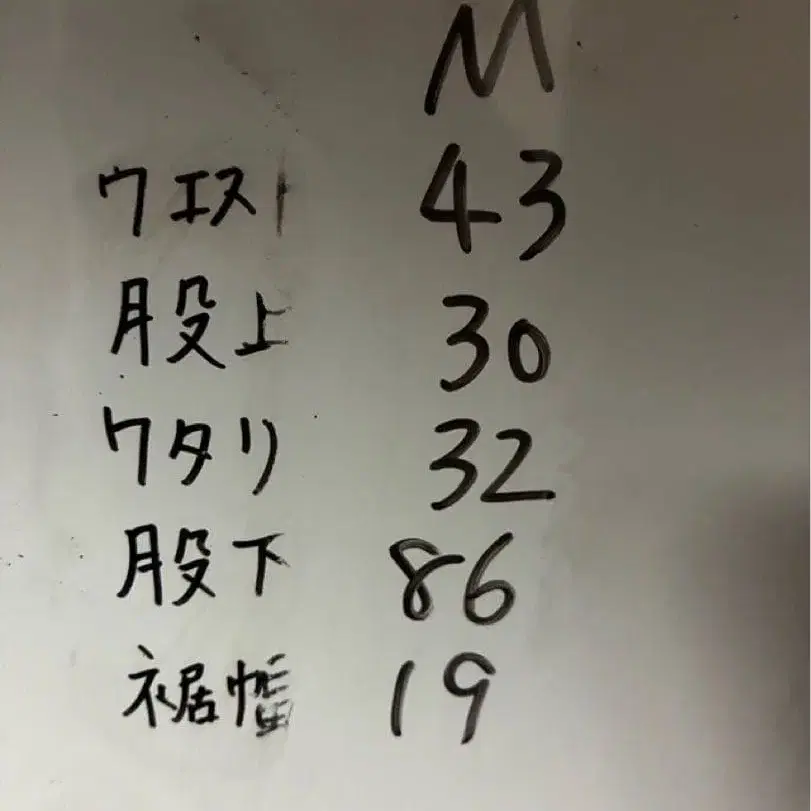 M
ウエスト 43
股上 30
ワタリ 32
股下 86
裾幅 19